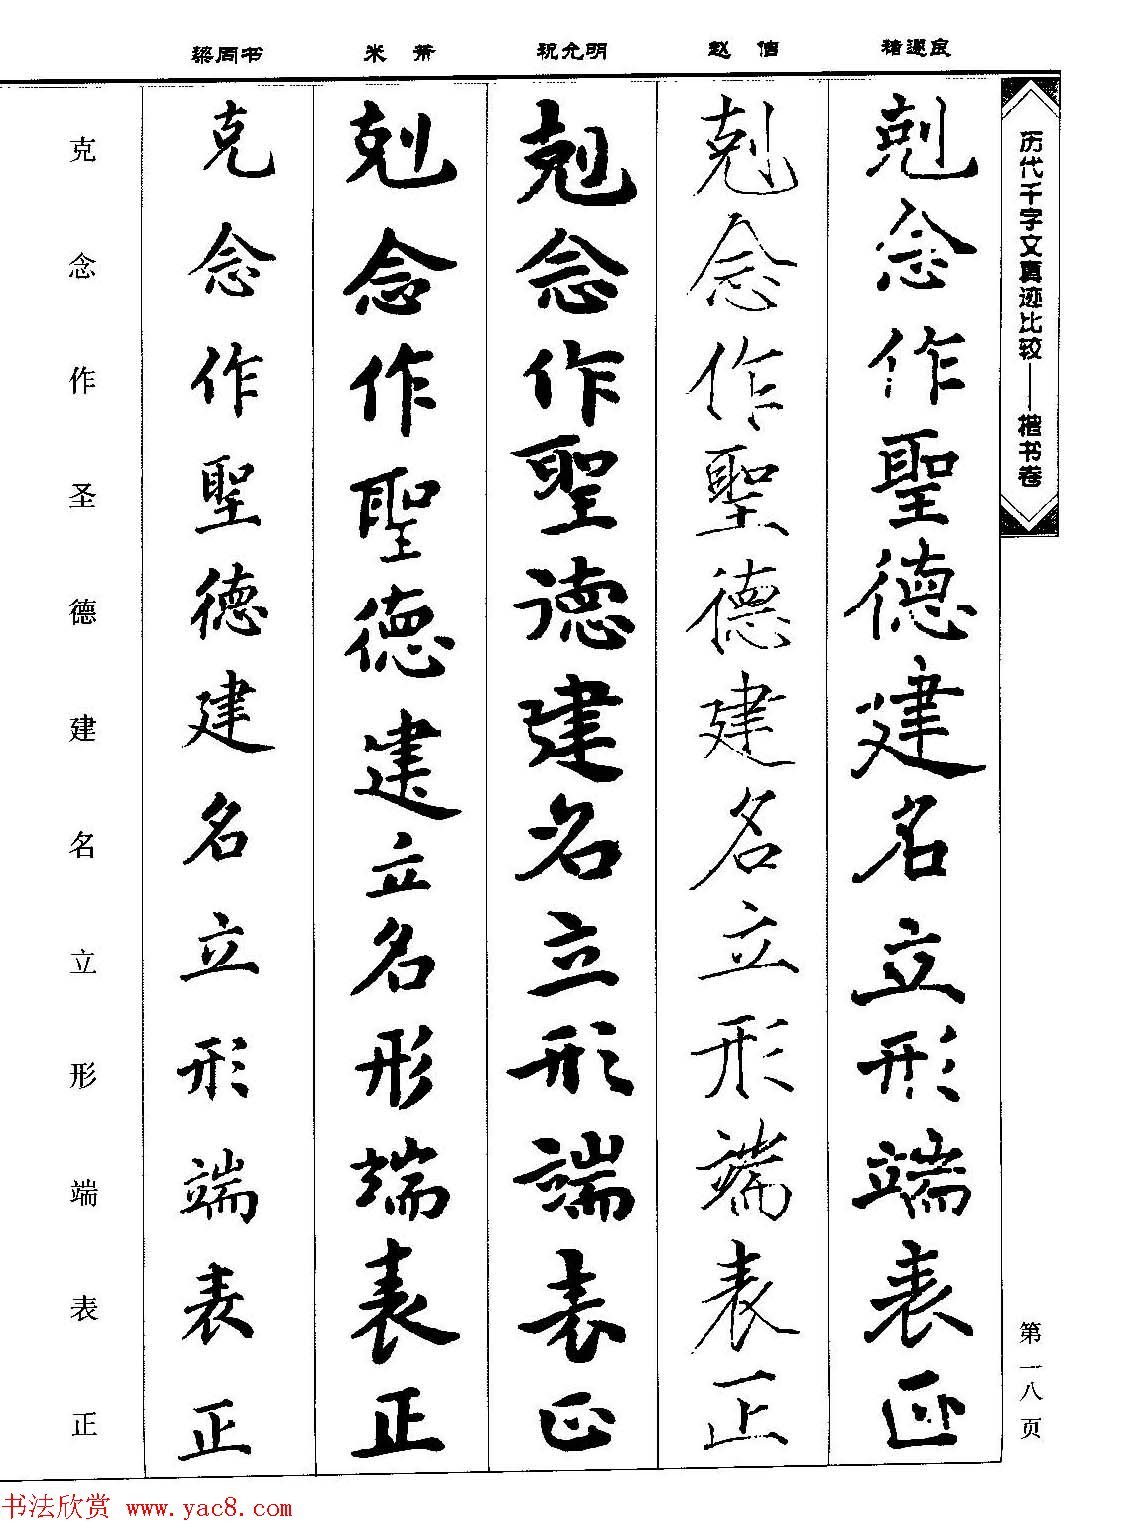 历代千字文真迹比较——楷书卷
第一八页
褚遂良
剋念作聖德建名立形端表正
赵佶
剋念作聖德建名立形端表正
祝允明
剋念作聖德建名立形端表正
米芾
剋念作聖德建立名形端表正
梁同书
克念作聖德建名立形端表正
克念作圣德建名立形端表正
书法欣赏 www.yac8.com